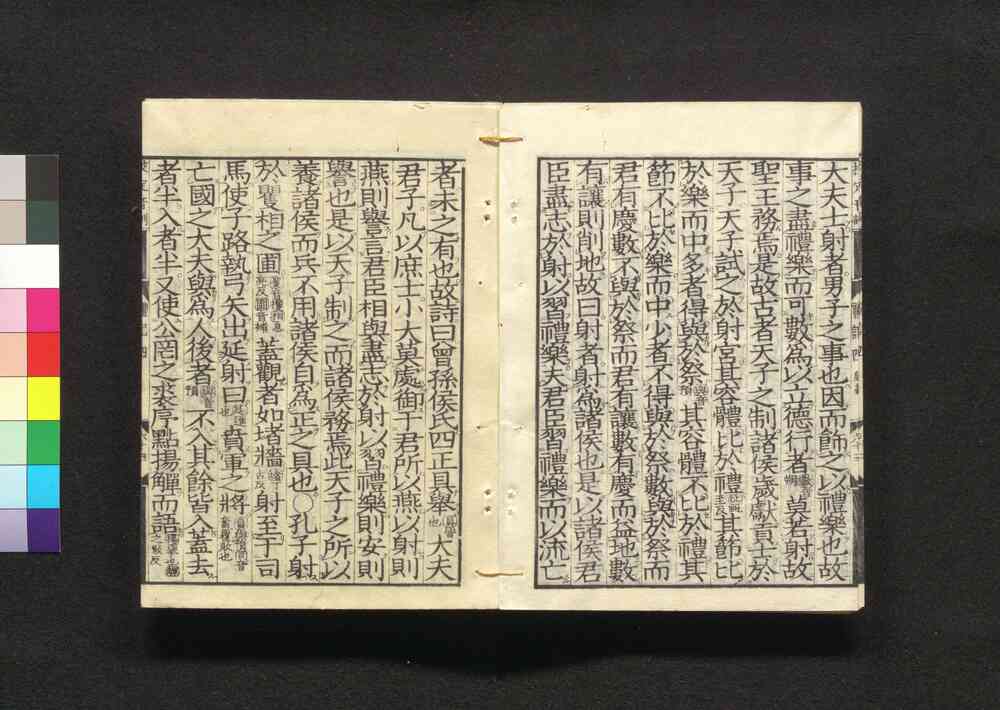 大夫士射者男子之事也因而飾之以禮樂也故
事之盡禮樂而可數爲以立德行者莫若射故
聖王務焉是故古者天子之制諸侯歲獻貢士於
天子天子試之於射宮其容體比於禮其節比
於樂而中多者得與於祭其容體不比於禮其
節不比於樂而中少者不得與於祭數與於祭而
君有慶數不與於祭而君有讓數有慶而益地數
有讓則削地故曰射者射爲諸侯也是以諸侯君
臣盡志於射以習禮樂夫君臣習禮樂而以流亡
者未之有也故詩曰曾孫侯氏四正具舉大夫
君子凡以庶士小大莫處御于君所以燕以射則
燕則譽言君臣相與盡志於射以習禮樂則安則
譽也是以天子制之而諸侯務焉此天子之所以
養諸侯而兵不用諸侯自爲正之具也○孔子射
於矍相之圃蓋觀者如堵牆射至于司
馬使子路執弓矢出延射曰賁軍之將
亡國之大夫與爲人後者不入其餘皆入蓋去
者半入者半又使公罔之裘序點揚觶而語